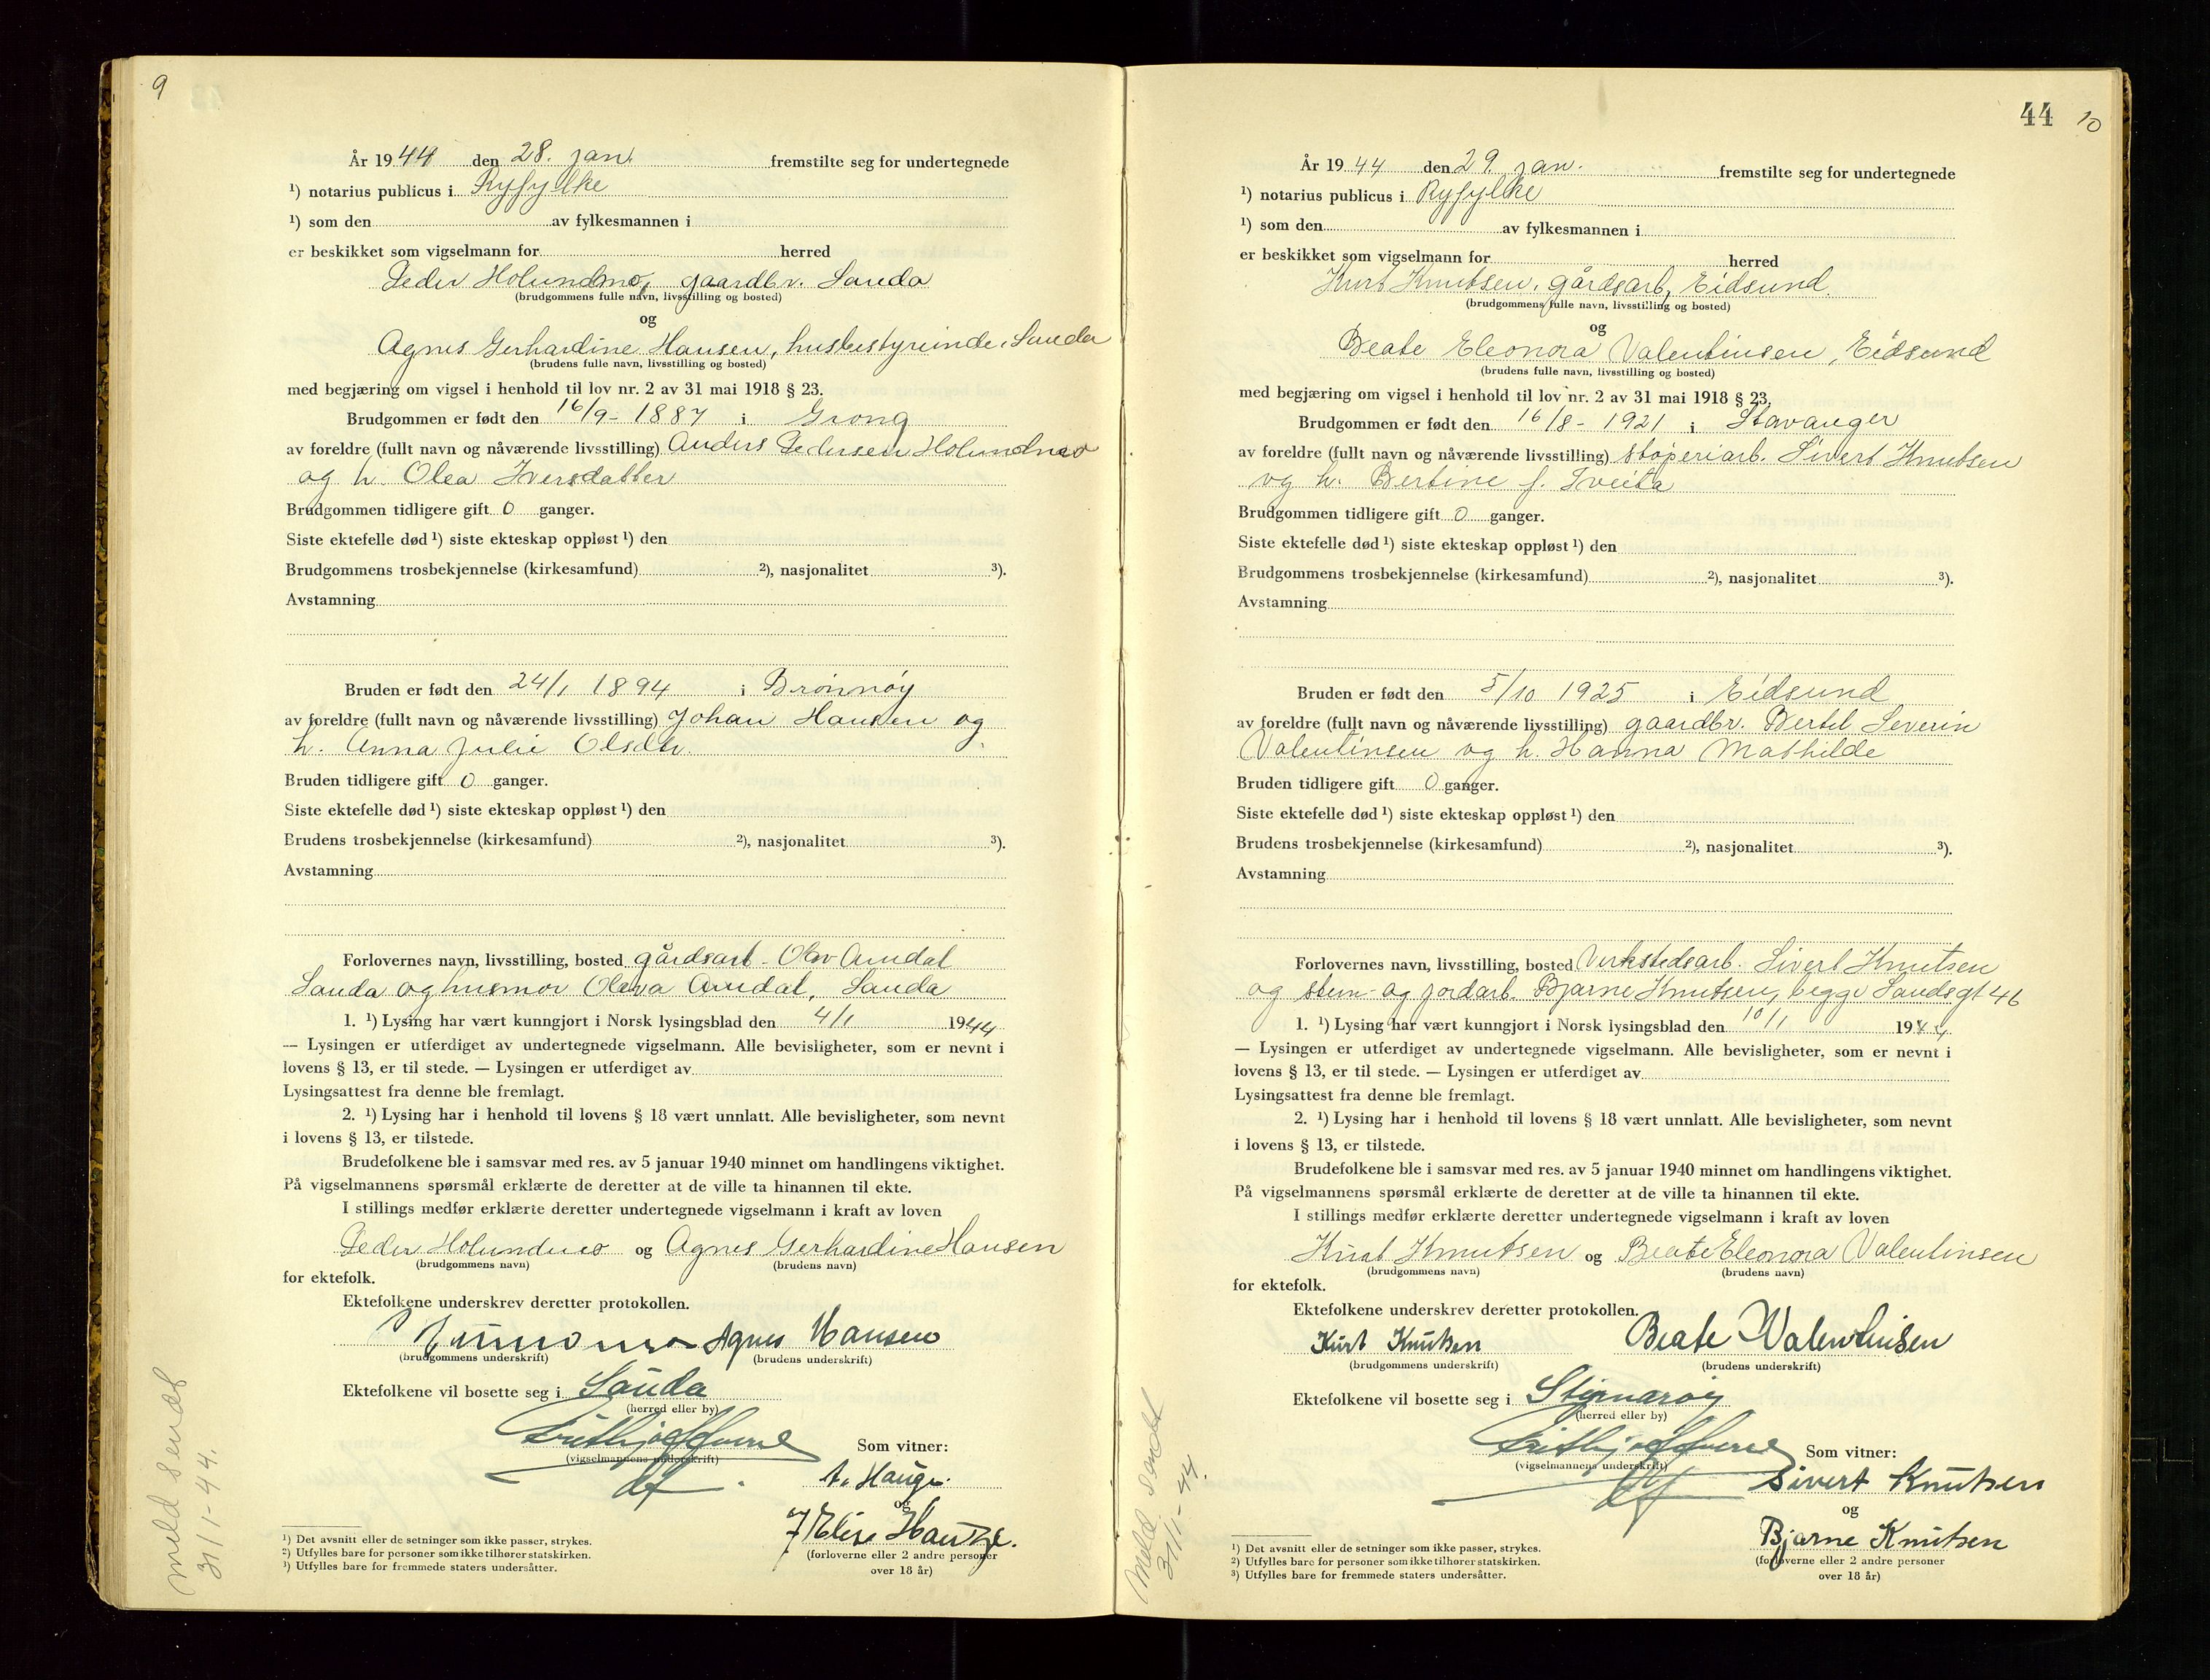 9
År 1944 den 28. jan. fremstilte seg for undertegnede
¹) notarius publicus i Ryfylke
¹) som den av fylkesmannen i
er beskikket som vigselmann for herred
Peder Holundmo, gaardbr. Sauda
(brudgommens fulle navn, livsstilling og bosted)
og
Agnes Gerhardine Hansen, husbestyrerinde, Sauda
(brudens fulle navn, livsstilling og bosted)
med begjæring om vigsel i henhold til lov nr. 2 av 31 mai 1918 § 23.
Brudgommen er født den 16/9- 1887 i Grong
av foreldre (fullt navn og nåværende livsstilling) Anders Pedersen Holundmo
og h. Olea Iversdatter
Brudgommen tidligere gift 0 ganger.
Siste ektefelle død ¹) siste ekteskap oppløst ¹) den
Brudgommens trosbekjennelse (kirkesamfund) ²), nasjonalitet ³).
Avstamning
Bruden er født den 24/1 1894 i Brønnøy
av foreldre (fullt navn og nåværende livsstilling) Johan Hansen og
h. Anna Julie Olsdtr.
Bruden tidligere gift 0 ganger.
Siste ektefelle død ¹) siste ekteskap oppløst ¹) den
Brudens trosbekjennelse (kirkesamfund) ²), nasjonalitet ³).
Avstamning
Forlovernes navn, livsstilling, bosted gårdsarb. Olav Amdal
Sauda og husmor Olava Amdal, Sauda
1. ¹) Lysing har vært kunngjort i Norsk lysingsblad den 4/1 1944
— Lysingen er utferdiget av undertegnede vigselmann. Alle bevisligheter, som er nevnt i
lovens § 13, er til stede. — Lysingen er utferdiget av
Lysingsattest fra denne ble fremlagt.
2. ¹) Lysing har i henhold til lovens § 18 vært unnlatt. Alle bevisligheter, som nevnt
i lovens § 13, er tilstede.
Brudefolkene ble i samsvar med res. av 5 januar 1940 minnet om handlingens viktighet.
På vigselmannens spørsmål erklærte de deretter at de ville ta hinannen til ekte.
I stillings medfør erklærte deretter undertegnede vigselmann i kraft av loven
Peder Holundmo og Agnes Gerhardine Hansen
(brudgommens navn) (brudens navn)
for ektefolk.
Ektefolkene underskrev deretter protokollen.
Agnes Hansen
(brudgommens underskrift) (brudens underskrift)
Ektefolkene vil bosette seg i Sauda
(herred eller by)
Som vitner:
(vigselmannens underskrift)
A. Hauge.
og
Elise Hauge.
(forloverne eller 2 andre personer
over 18 år)
¹) Det avsnitt eller de setninger som ikke passer, strykes.
²) Utfylles bare for personer som ikke tilhører statskirken.
³) Utfylles bare for fremmede staters undersåtter.
meld sendt
31/1-44.
44 10
År 1944 den 29. jan. fremstilte seg for undertegnede
¹) notarius publicus i Ryfylke
¹) som den av fylkesmannen i
er beskikket som vigselmann for herred
Kurt Knutsen, gårdsarb, Eidsund.
(brudgommens fulle navn, livsstilling og bosted)
og
Beate Eleonora Valentinsen, Eidsund
(brudens fulle navn, livsstilling og bosted)
med begjæring om vigsel i henhold til lov nr. 2 av 31 mai 1918 § 23.
Brudgommen er født den 16/8- 1921 i Stavanger
av foreldre (fullt navn og nåværende livsstilling) støperiarb. Sivert Knutsen
og h. Bertine f. Tveita
Brudgommen tidligere gift 0 ganger.
Siste ektefelle død ¹) siste ekteskap oppløst ¹) den
Brudgommens trosbekjennelse (kirkesamfund) ²), nasjonalitet ³).
Avstamning
Bruden er født den 5/10 1925 i Eidsund
av foreldre (fullt navn og nåværende livsstilling) gaardbr. Bertel Severin
Valentinsen og h. Hanna Mathilde
Bruden tidligere gift 0 ganger.
Siste ektefelle død ¹) siste ekteskap oppløst ¹) den
Brudens trosbekjennelse (kirkesamfund) ²), nasjonalitet ³).
Avstamning
Forlovernes navn, livsstilling, bosted Verkstedsarb. Sivert Knutsen
og stein- og jordarb. Bjarne Knutsen, begge Sandsgt 46
1. ¹) Lysing har vært kunngjort i Norsk lysingsblad den 10/1 1944
— Lysingen er utferdiget av undertegnede vigselmann. Alle bevisligheter, som er nevnt i
lovens § 13, er til stede. — Lysingen er utferdiget av
Lysingsattest fra denne ble fremlagt.
2. ¹) Lysing har i henhold til lovens § 18 vært unnlatt. Alle bevisligheter, som nevnt
i lovens § 13, er tilstede.
Brudefolkene ble i samsvar med res. av 5 januar 1940 minnet om handlingens viktighet.
På vigselmannens spørsmål erklærte de deretter at de ville ta hinannen til ekte.
I stillings medfør erklærte deretter undertegnede vigselmann i kraft av loven
Kurt Knutsen og Beate Eleonora Valentinsen
(brudgommens navn) (brudens navn)
for ektefolk.
Ektefolkene underskrev deretter protokollen.
Kurt Knutsen Beate Valentinsen
(brudgommens underskrift) (brudens underskrift)
Ektefolkene vil bosette seg i Stjernarøy
(herred eller by)
Som vitner:
(vigselmannens underskrift)
Sivert Knutsen
og
Bjarne Knutsen
(forloverne eller 2 andre personer
over 18 år)
¹) Det avsnitt eller de setninger som ikke passer, strykes.
²) Utfylles bare for personer som ikke tilhører statskirken.
³) Utfylles bare for fremmede staters undersåtter.
Meld. sendt
31/1-44.